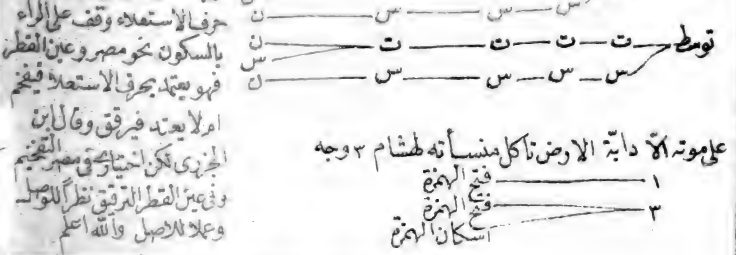 س
ن س س س
توسط ت ت ت ت ن
س س س س س
ن
على موته الّا دابّة الارض تاكل منسأته لهشام ٣ وجه
١ فتح الهمزة
٣ فتح الهمزة
اسكان الهمزة
حرف الاستعلاء وقف على الراء
بالسكون نحو مصر وعين القطر
فهو يعتد بحرف الاستعلاء فيفخم
ام لا يعتد فيرقق وقال ابن
الجزرى لكن اختيارى فى مصر التفخيم
وفى عين القطر الترقيق نظرا للوصل
وعملا للاصل والله اعلم